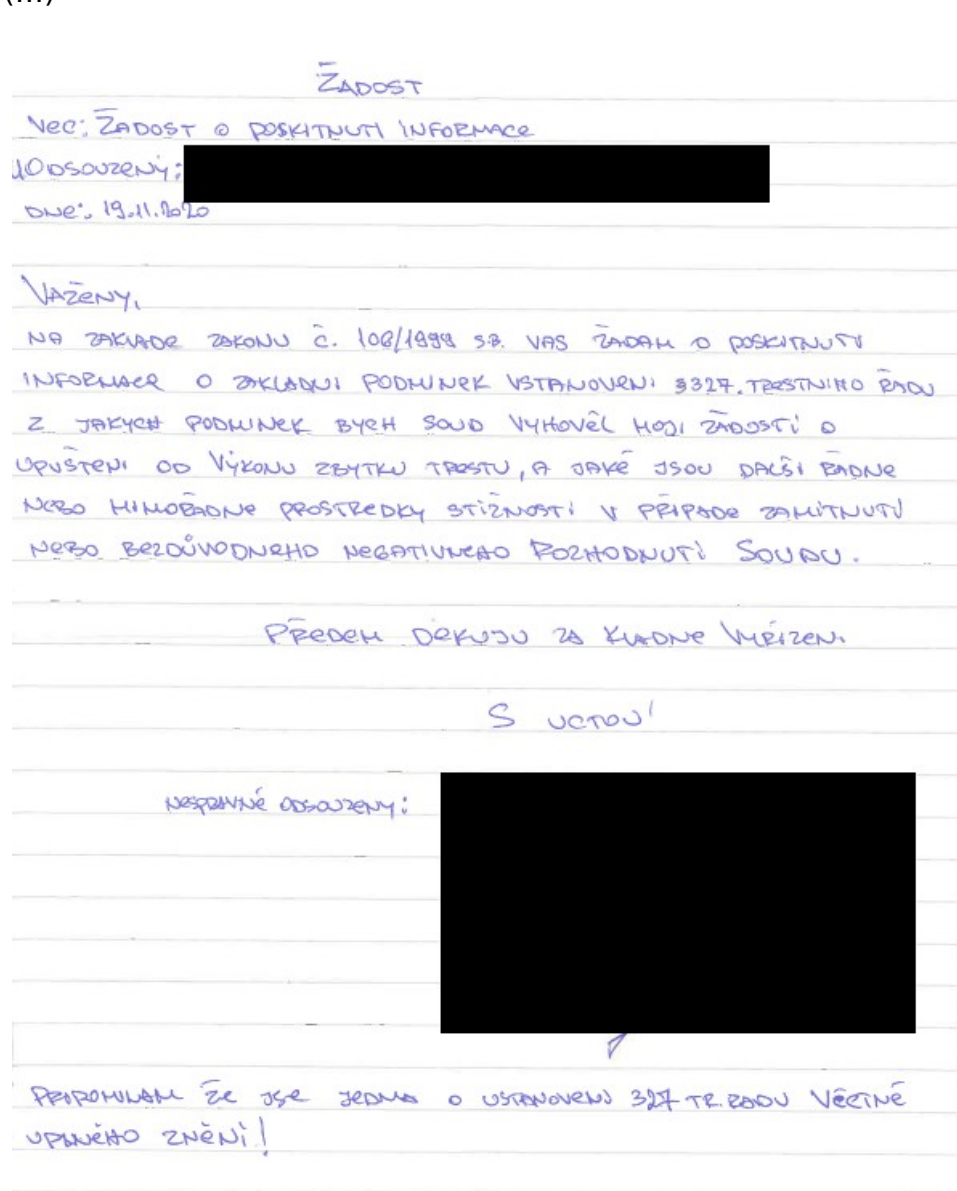 (...)
ŽADOST
VEC: ŽADOST O POSKITNUTI INFORMACE
ODSOUZENÝ:
DNE: 19.11.2020
VAŽENY,
NA ZAKLADE ZAKONU Č. 106/1999 SB. VAS ŽADAM O POSKITNUTI
INFORMACE O ZAKLADNI PODMINEK USTANOVENI §327. TRESTNIHO ŘADU
Z JAKYCH PODMINEK BYCH SOUD VYHOVĚL MOJI ŽADOSTI O
UPUŠTENI OD VÝKONU ZBYTKU TRESTU, A JAKÉ JSOU DALŠI ŘADNE
NEBO MIMOŘADNE PROSTREDKY STIŽNOSTI V PŘIPADE ZAMITNUTI
NEBO BEZDŮVODNEHO NEGATIVNEHO ROZHODNUTI SOUDU.
PŘEDEM DĚKUJU ZA KLADNE VYŘIZENI
S UCTOU
NESPRAVNÉ ODSOUZENY:
PRIPOMINAM ŽE JSE JEDNA O USTANOVENI 327 TR. ŘADU VĚCTNĚ
UPLNÉHO ZNĚNÍ!